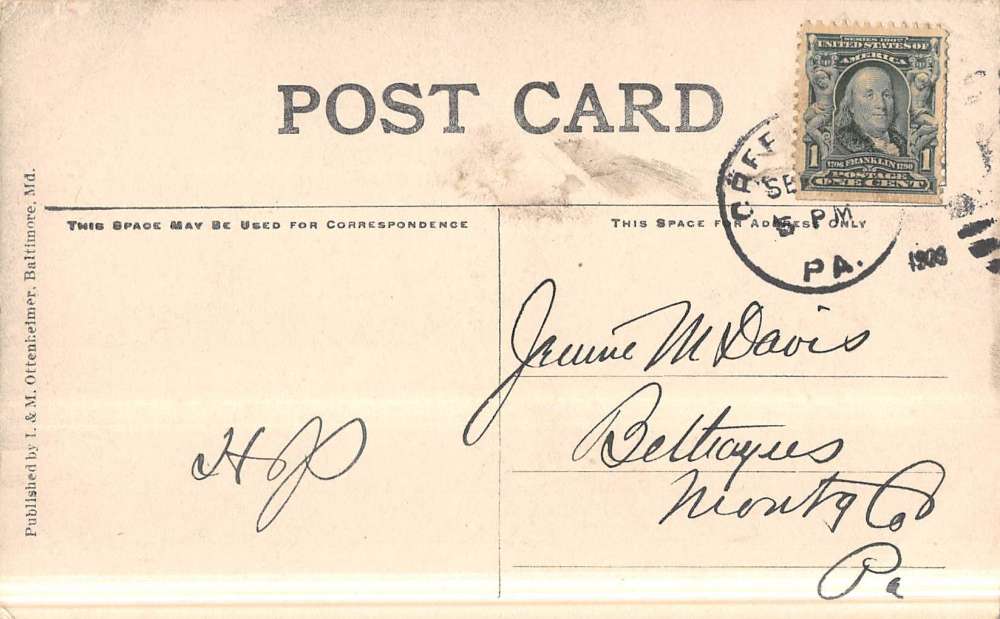 POST CARD
SERIES 1902
UNITED STATES OF
AMERICA
1706 FRANKLIN 1790
1 1
POSTAGE
ONE CENT
5 PM
PA.
1908
THIS SPACE MAY BE USED FOR CORRESPONDENCE
THIS SPACE FOR ADDRESS ONLY
Published by I. & M. Ottenheimer, Baltimore, Md.
Jennie M Davis
Monty Co
Pa